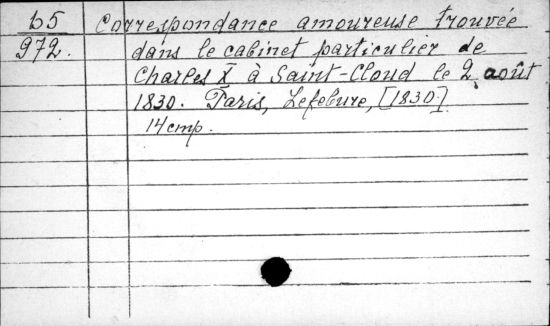 b5 Correspondance amoureuse trouvée
972. dans le cabinet particulier de
Charles X à Saint-Cloud le 2 août
1830. Paris, Lefebure, [1830.]
14 cmp.